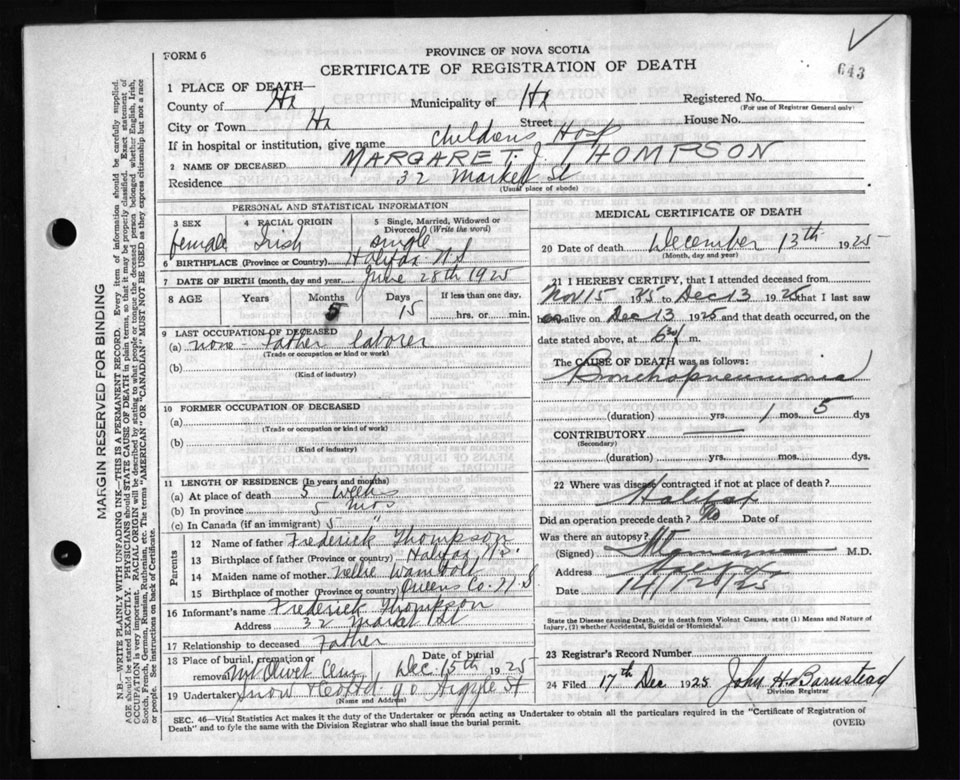 643
FORM 6
PROVINCE OF NOVA SCOTIA
CERTIFICATE OF REGISTRATION OF DEATH
MARGIN RESERVED FOR BINDING
N.B.—WRITE PLAINLY WITH UNFADING INK—THIS IS A PERMANENT RECORD. Every item of information should be carefully supplied.
AGE should be stated EXACTLY. PHYSICIANS should STATE CAUSE OF DEATH in plain terms, so that it may be properly classified. Exact statement of
OCCUPATION is very important. RACIAL ORIGIN will be described by stating to what people or tongue the deceased person belonged whether English, Irish,
Scotch, French, German, Russian, Ruthenian, etc. The terms "AMERICAN" OR "CANADIAN" MUST NOT BE USED as they express citizenship but not a race
or people. See instructions on back of Certificate.
1 PLACE OF DEATH—
County of Hx Municipality of Hx Registered No.
(For use of Registrar General only)
City or Town Hx Street House No.
If in hospital or institution, give name Childrens Hosp
2 NAME OF DECEASED MARGARET. J. THOMPSON
Residence 32 Market St
(Usual place of abode)
PERSONAL AND STATISTICAL INFORMATION
3 SEX 4 RACIAL ORIGIN 5 Single, Married, Widowed or
Divorced (Write the word)
female Irish single
6 BIRTHPLACE (Province or Country) Halifax N S
7 DATE OF BIRTH (month, day and year) June 28th 1925
8 AGE Years Months Days If less than one day,
5 15 hrs. or min.
9 LAST OCCUPATION OF DECEASED
(a) none - Father laborer
(Trade or occupation or kind of work)
(b)
(Kind of industry)
10 FORMER OCCUPATION OF DECEASED
(a)
(Trade or occupation or kind of work)
(b)
(Kind of industry)
11 LENGTH OF RESIDENCE (In years and months)
(a) At place of death 5 weeks
(b) In province 5 mos
(c) In Canada (if an immigrant) 5 "
Parents
12 Name of father Frederick Thompson
13 Birthplace of father (Province or country) Halifax N.S.
14 Maiden name of mother Nellie Wambolt
15 Birthplace of mother (Province or country) Queens Co. N. S.
16 Informant's name Frederick Thompson
Address 32 Market St
17 Relationship to deceased Father
18 Place of burial, cremation or Date of burial
removal Mt Olivet Cem Dec. 15th 1925
19 Undertaker Snow & Co Ltd 90 Argyle St
(Name and Address)
MEDICAL CERTIFICATE OF DEATH
20 Date of death December 13th 1925
(Month, day and year)
21 I HEREBY CERTIFY, that I attended deceased from
Nov 15 1925 to Dec 13 1925 that I last saw
alive on Dec 13 1925 and that death occurred, on the
date stated above, at m.
The CAUSE OF DEATH was as follows:
Bronchopneumonia
(duration) yrs. 1 mos. 5 dys
CONTRIBUTORY
(Secondary)
(duration) yrs. mos. dys
22 Where was disease contracted if not at place of death?
Halifax
Did an operation precede death? No Date of
Was there an autopsy?
(Signed) M.D.
Address Halifax
Date
State the Disease causing Death, or in death from Violent Causes, state (1) Means and Nature of
Injury, (2) whether Accidental, Suicidal or Homicidal.
23 Registrar's Record Number
24 Filed 17th Dec 1925 John H. Barnstead
Division Registrar
SEC. 46—Vital Statistics Act makes it the duty of the Undertaker or person acting as Undertaker to obtain all the particulars required in the "Certificate of Registration of
Death" and to fyle the same with the Division Registrar who shall issue the burial permit. (OVER)